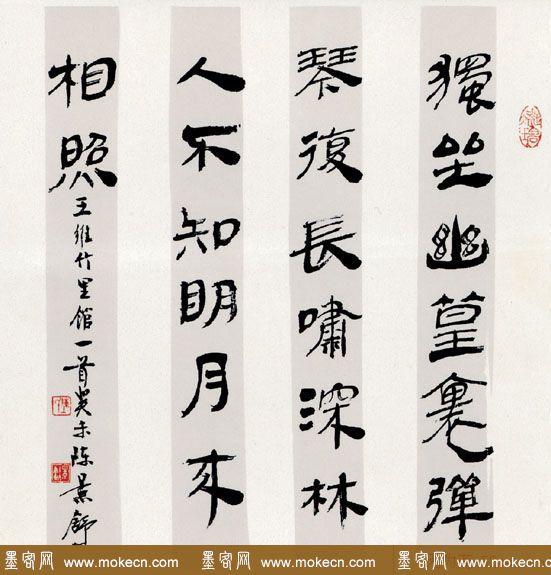 獨坐幽篁裏彈
琴復長嘯深林
人不知明月来
相照
王維竹里館一首癸未陈景舒
墨客网 www.mokecn.com 墨客网 www.mokecn.com 墨客网 www.mokecn.com